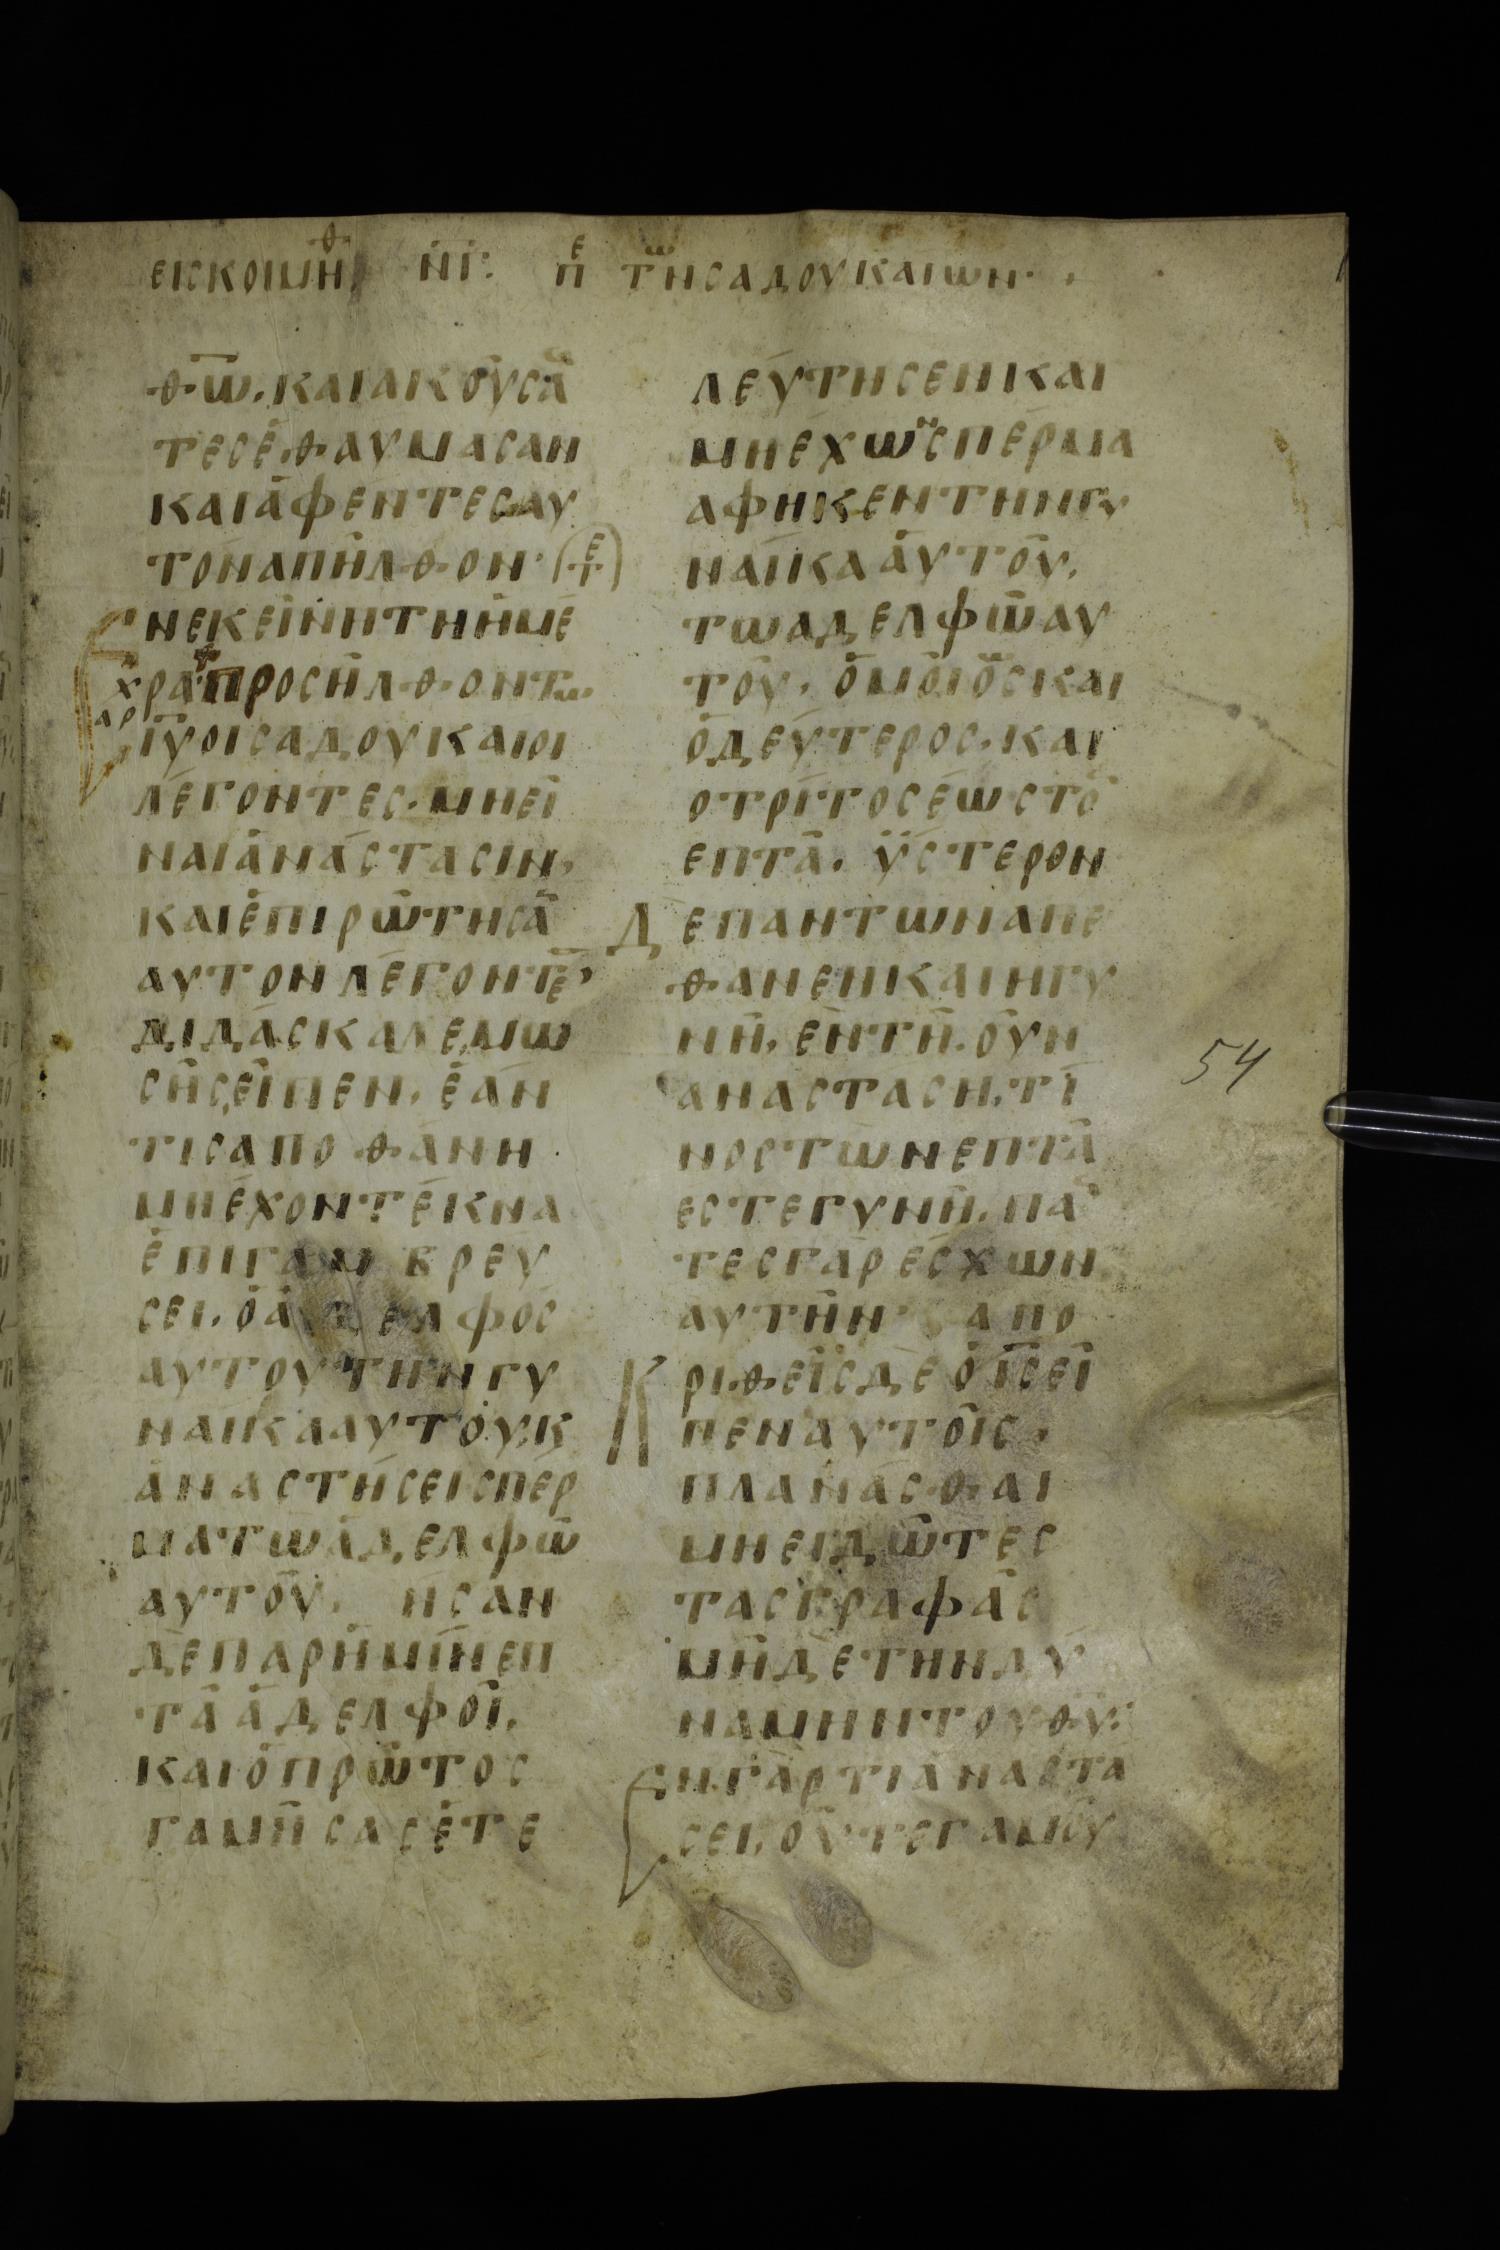 ΕΙΣΚΟΙΜΗΘ ΝΙ: ΠΕ ΤΩΝΣΑΔΟΥΚΑΙΩΝ·
ΘΩ. ΚΑΙΑΚΟΥΣΑΝ
ΤΕΣΕΘΑΥΜΑΣΑΝ
ΚΑΙΑΦΕΝΤΕΣΑΥ
ΤΟΝΑΠΗΛΘΟΝ· ΤΕ
ΕΝΕΚΕΙΝΗΤΗΗΜΕ
ΡΑ ΠΡΟΣΗΛΘΟΝΤΩ
ΙΥΟΙΣΑΔΟΥΚΑΙΟΙ
ΛΕΓΟΝΤΕΣ. ΜΗΕΙ
ΝΑΙΑΝΑΣΤΑΣΙΝ,
ΚΑΙΕΠΙΡΩΤΗΣΑΝ
ΑΥΤΟΝΛΕΓΟΝΤΕΣ,
ΔΙΔΑΣΚΑΛΕ, ΜΩ
ΣΗΣΕΙΠΕΝ. ΕΑΝ
ΤΙΣΑΠΟΘΑΝΗ
ΜΗΕΧΟΝΤΕΚΝΑ
ΕΠΙΓΑΜΒΡΕΥ
ΣΕΙ. ΟΑΔΕΛΦΟΣ
ΑΥΤΟΥΤΗΝΓΥ
ΝΑΙΚΑΑΥΤΟΥ, Κ
ΑΝΑΣΤΗΣΕΙΣΠΕΡ
ΜΑΤΩΑΔΕΛΦΩ
ΑΥΤΟΥ. ΗΣΑΝ
ΔΕΠΑΡΗΜΙΝΕΠ
ΤΑΑΔΕΛΦΟΙ.
ΚΑΙΟΠΡΩΤΟΣ
ΓΑΜΗΣΑΣΕΤΕ
ΛΕΥΤΗΣΕΝΚΑΙ
ΜΗΕΧΩΝΣΠΕΡΜΑ
ΑΦΗΚΕΝΤΗΝΓΥ
ΝΑΙΚΑΑΥΤΟΥ.
ΤΩΑΔΕΛΦΩΑΥ
ΤΟΥ. ΟΜΟΙΟΣΚΑΙ
ΟΔΕΥΤΕΡΟΣ. ΚΑΙ
ΟΤΡΙΤΟΣΕΩΣΤΟ
ΕΠΤΑ. ΥΣΤΕΡΟΝ
ΔΕΠΑΝΤΩΝΑΠΕ
ΘΑΝΕΝΚΑΙΗΓΥ
ΝΗ. ΕΝΤΗ. ΟΥΝ
ΑΝΑΣΤΑΣΗ. ΤΙ
ΝΟΣΤΩΝΕΠΤΑ
ΕΣΤΕΓΥΝΗ. ΠΑ
ΤΕΣΓΑΡΕΣΧΩΝ
ΑΥΤΗΝ· ΑΠΟ
ΚΡΙΘΕΙΣΔΕΟΙΣΕΙ
ΠΕΝΑΥΤΟΙΣ.
ΠΛΑΝΑΣΘΑΙ
ΜΗΕΙΔΩΤΕΣ
ΤΑΣΓΡΑΦΑΣ
ΜΗΔΕΤΗΝΔΥ
ΝΑΜΗΝΤΟΥΘΥ:
ΕΝΓΑΡΤΙΑΝΑΣΤΑ
ΣΕΙ, ΟΥΤΕΓΑΜΟΥ
54